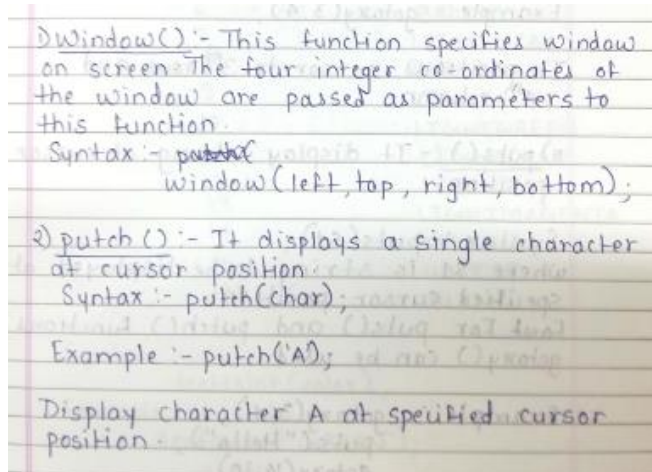 1) Window() :- This function specifies window
on screen The four integer co-ordinates of
the window are passed as parameters to
this function.
Syntax :-
window (left, top, right, bottom);
2) putch () :- It displays a single character
at cursor position
Syntax :- putch(char);
Example :- putch('A');
Display character A at specified cursor
position.